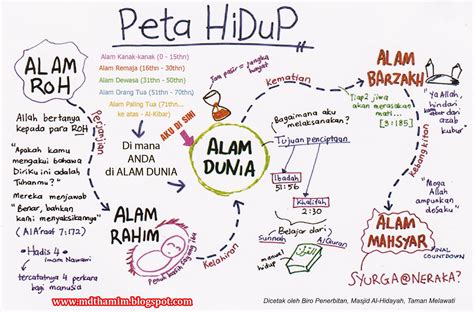 Peta HiDuP
ALAM
ROH
Allah bertanya
kepada para ROH
"Apakah kamu
mengakui bahawa
DiriKu ini adalah
Tuhanmu?"
Mereka menjawab
"Benar, bahkan
kami menyaksikannya"
(Al A'raaf 7:172)
Hadis 4
imam Nawawi
tercatatnya 4 perkara
bagi manusia
Perjanjian
Alam Kanak-kanak (0 - 15thn)
Alam Remaja (16thn - 30thn)
Alam Dewasa (31thn - 50thn)
Alam Orang Tua (51thn - 70thn)
Alam Paling Tua (71thn...
ke atas - Al-Kibar)
Di mana
ANDA
di ALAM DUNIA
AKU DI SINI
Jam pasir = jangka
hayat
ALAM
RAHIM
Penuh kasih sayang ibu
Kelahiran
ALAM
DUNIA
Bagaimana aku
melaksanakan?
Tujuan penciptaan
Ibadah
51:56
Khalifah
2:30
Belajar dari
Sunnah
Al Quran
manual
hidup
Kematian
ALAM
BARZAKH
Tiap2 jiwa
akan merasakan
mati...
[3:185]
"Ya Allah,
hindari
dari
azab
kubur"
Kebangkitan
"Moga
Allah
ampunkan
dosaku"
ALAM
MAHSYAR
FINAL
COUNTDOWN
SYURGA@NERAKA?
www.mdthamlm.blogspot.com
Dicetak oleh Biro Penerbitan, Masjid Al-Hidayah, Taman Melawati